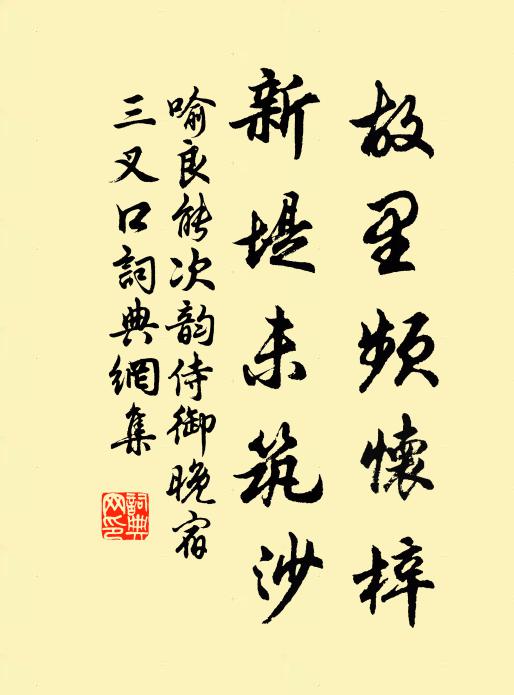 故里频懷梓
新堤未筑沙
喻良能次韵侍御晚宿
三叉口詞典網集
詞典
网印